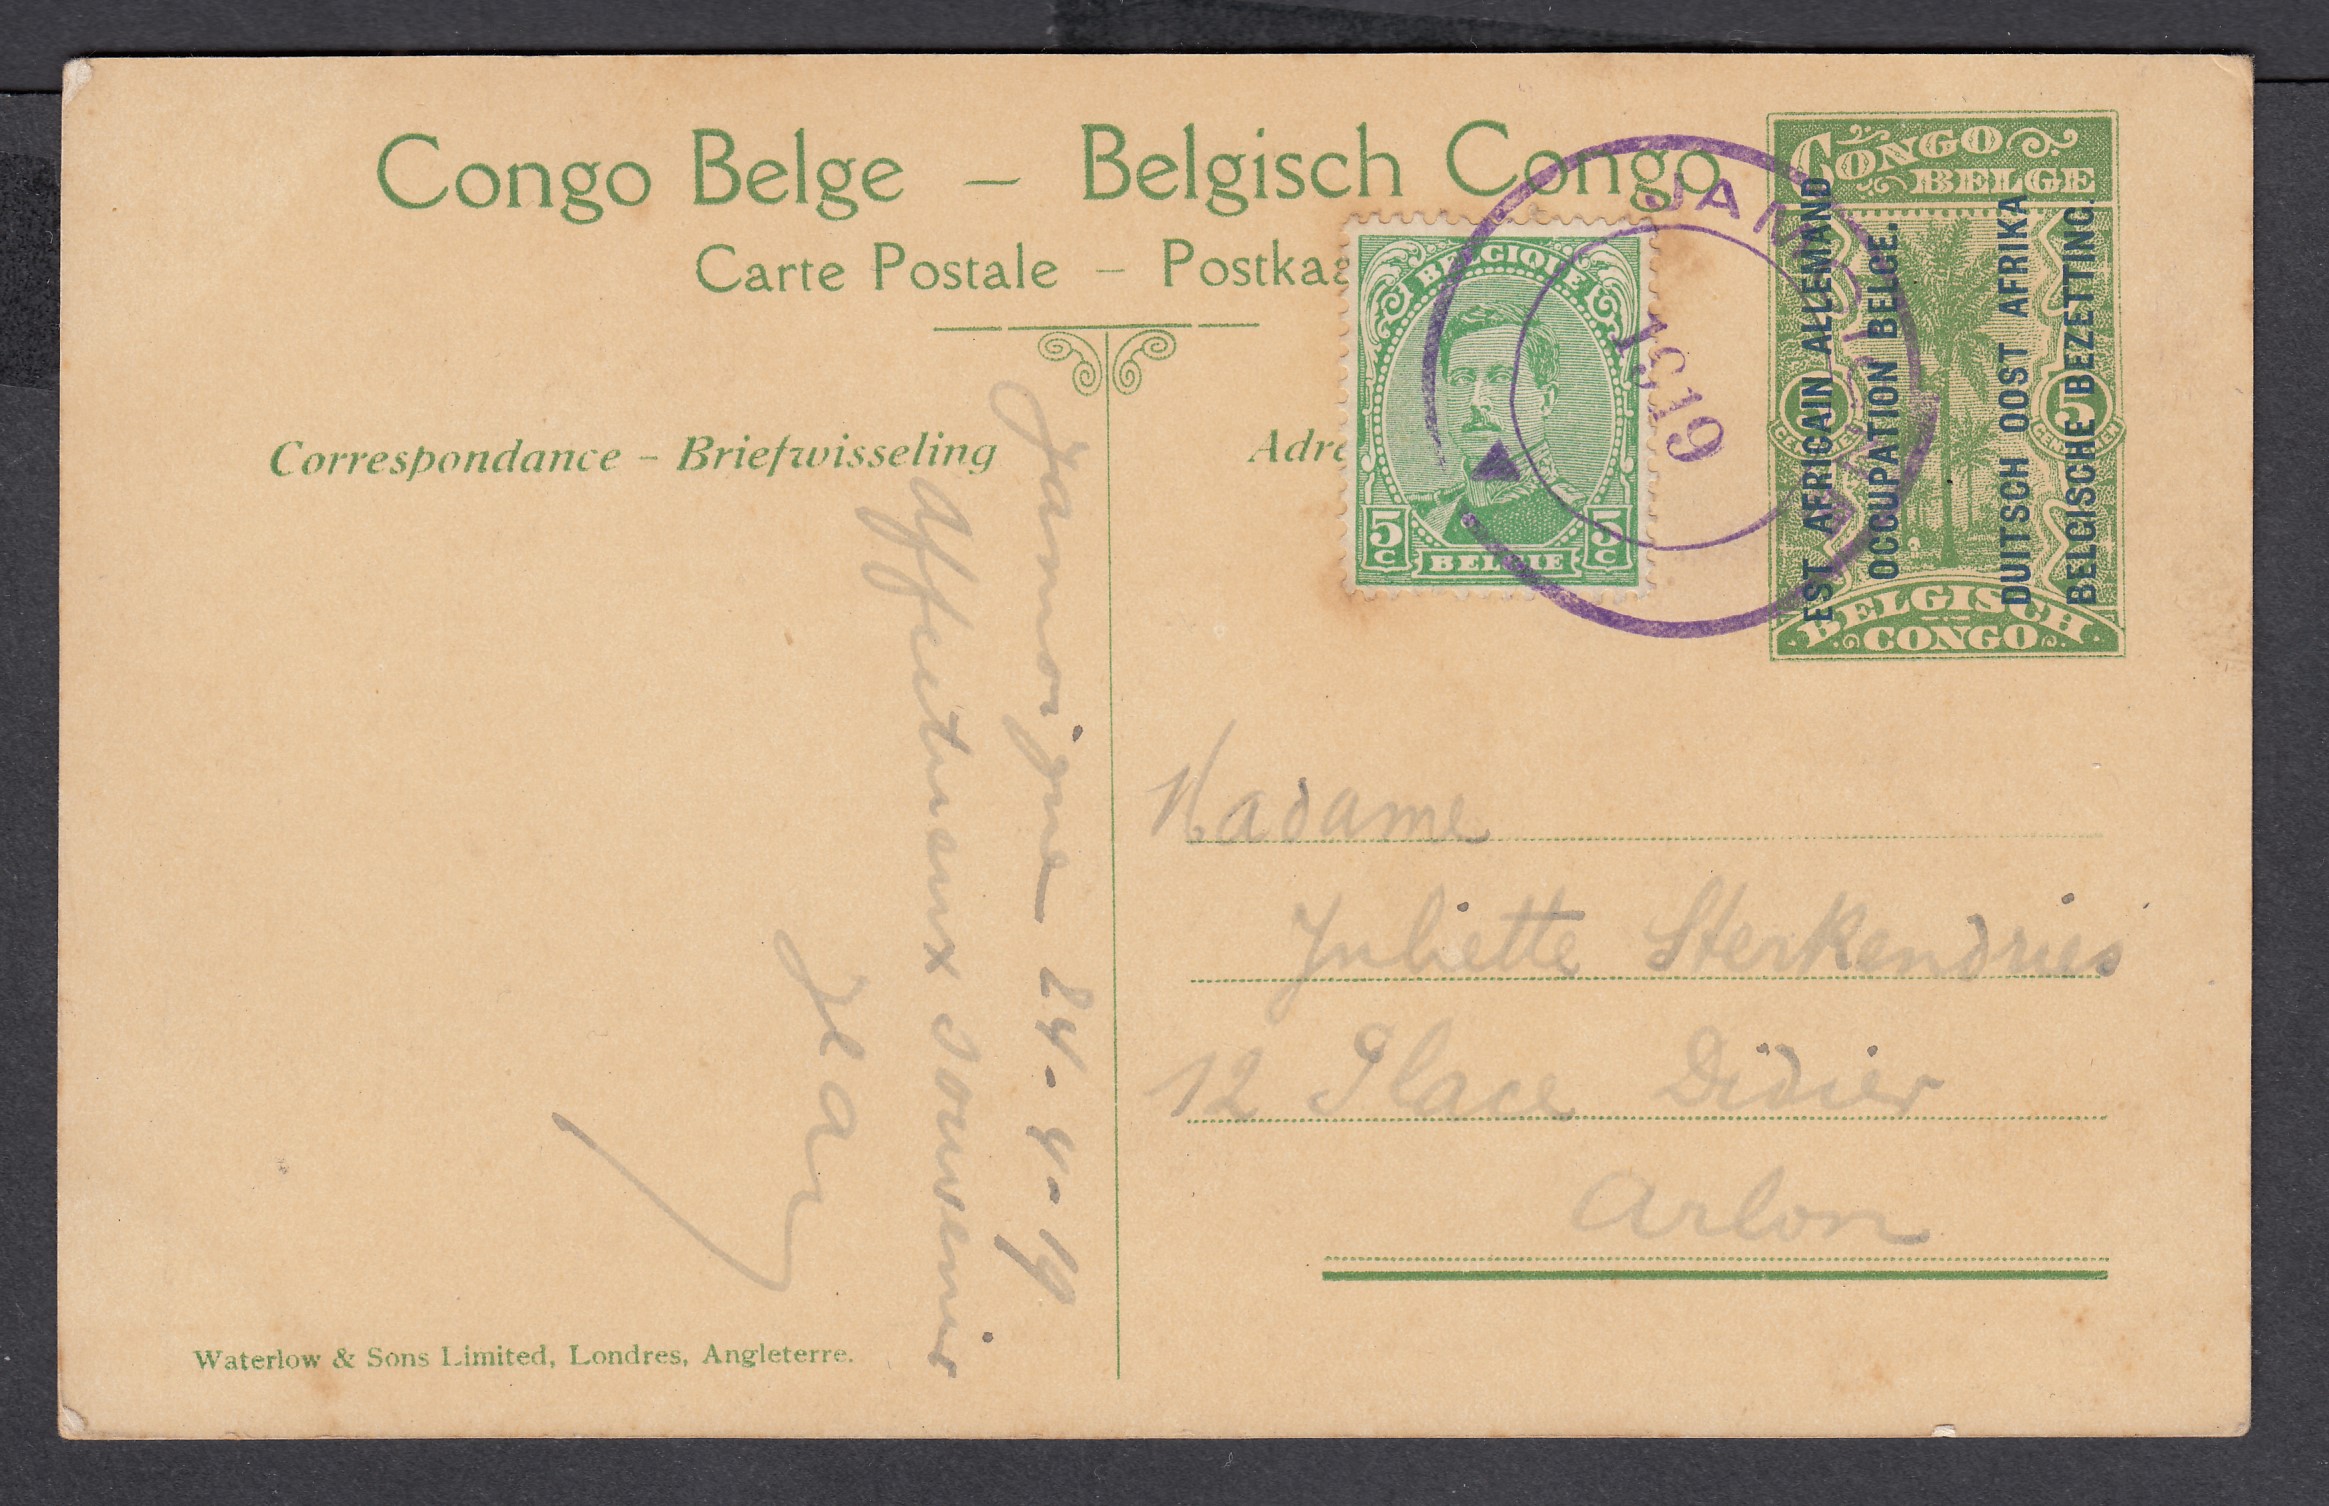 Congo Belge – Belgisch Congo
Carte Postale – Postkaa
Correspondance – Briefwisseling
Adre
CONGO
BELGE
5
5
BELGISCH
CONGO
EST AFRICAIN ALLEMAND
OCCUPATION BELGE.
DUITSCH OOST AFRIKA
BELGISCHE BEZETTING.
BELGIQUE
5c
5c
BELGIE
1919
Jamoigne 24-4-19
Affectueux souvenir
Madame
Juliette Sterkendries
12 Place Didier
Arlon
Waterlow & Sons Limited, Londres, Angleterre.